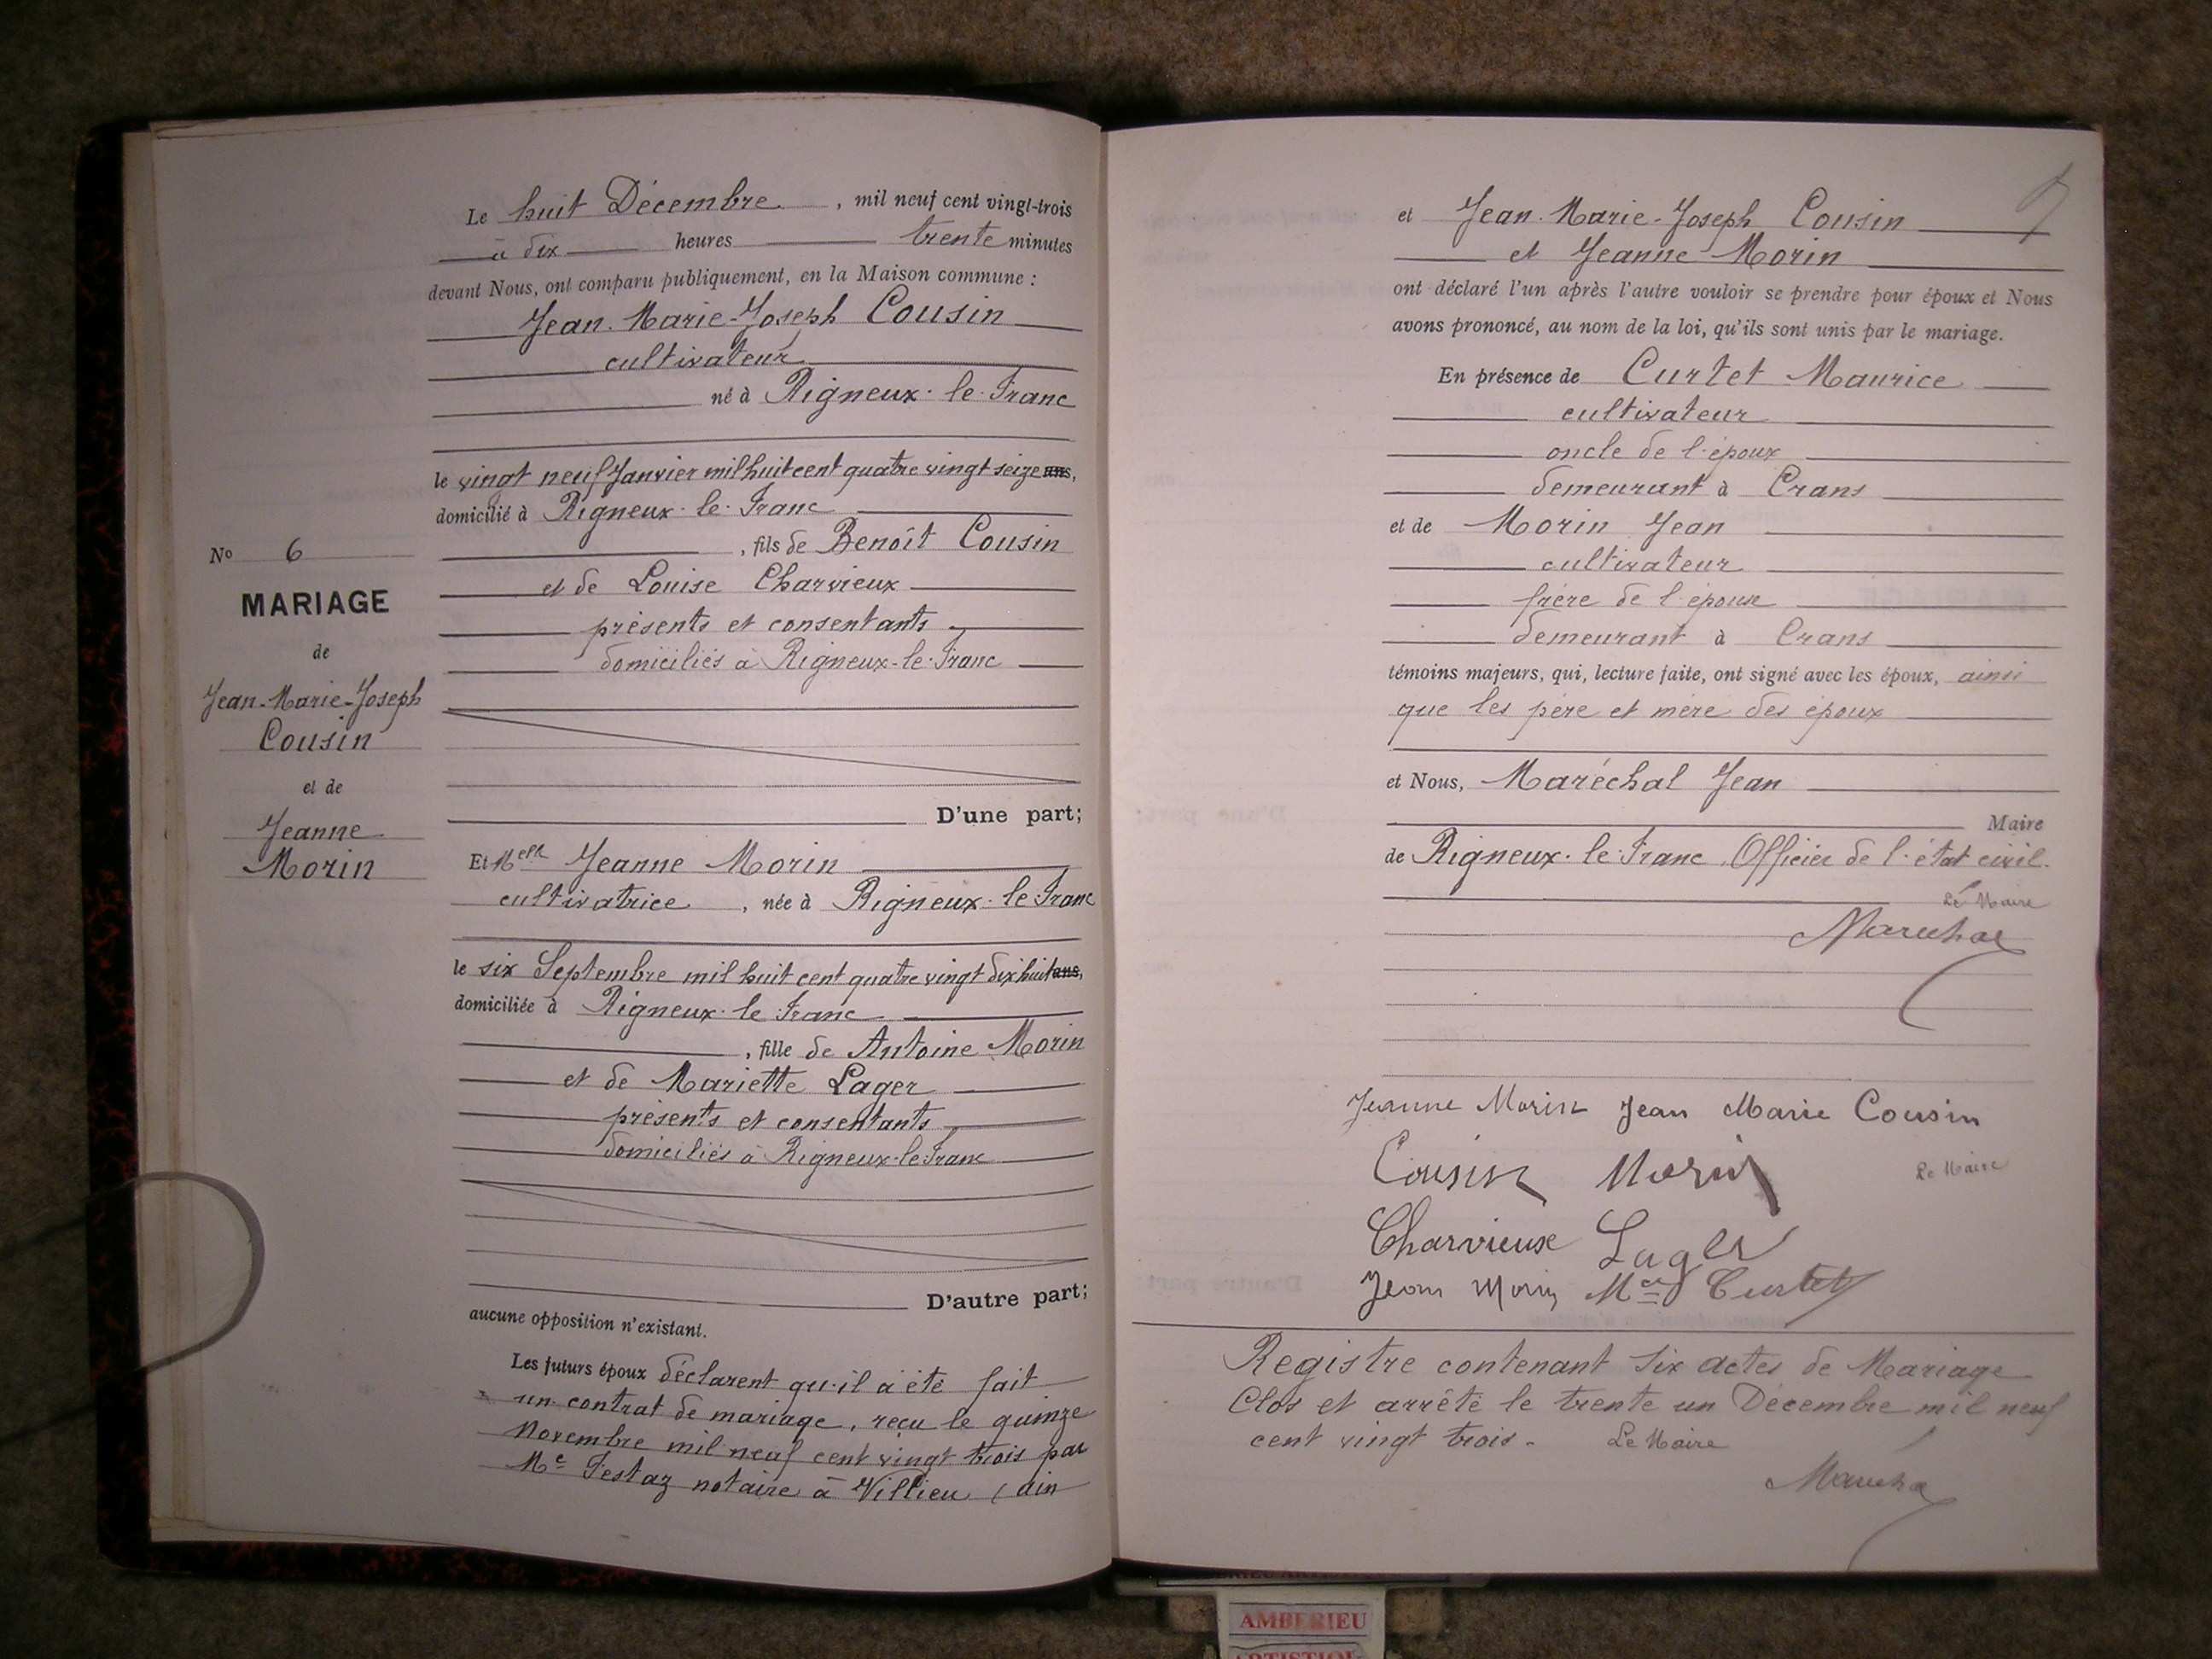 Le huit Décembre, mil neuf cent vingt-trois
à dix heures trente minutes
devant Nous, ont comparu publiquement, en la Maison commune :
Jean-Marie-Joseph Cousin
cultivateur
né à Rigneux-le-Franc
le vingt neuf Janvier mil huit cent quatre vingt seize ans,
domicilié à Rigneux-le-Franc
, fils de Benoît Cousin
et de Louise Charvieux
présents et consentants
domiciliés à Rigneux-le-Franc
D'une part;
No 6
MARIAGE
de
Jean-Marie-Joseph
Cousin
et de
Jeanne
Morin
Et Melle Jeanne Morin
cultivatrice, née à Rigneux-le-Franc
le six Septembre mil huit cent quatre vingt dix huit ans,
domiciliée à Rigneux-le-Franc
, fille de Antoine Morin
et de Mariette Lager
présents et consentants
domiciliés à Rigneux-le-Franc
D'autre part;
aucune opposition n'existant.
Les futurs époux déclarent qu'il a été fait
un contrat de mariage, reçu le quinze
Novembre mil neuf cent vingt trois par
Me Festaz notaire à Villieu (ain
et Jean-Marie-Joseph Cousin
et Jeanne Morin
ont déclaré l'un après l'autre vouloir se prendre pour époux et Nous
avons prononcé, au nom de la loi, qu'ils sont unis par le mariage.
En présence de Curtet Maurice
cultivateur
oncle de l'époux
demeurant à Crans
et de Morin Jean
cultivateur
frère de l'épouse
demeurant à Crans
témoins majeurs, qui, lecture faite, ont signé avec les époux, ainsi
que les père et mère des époux
et Nous, Maréchal Jean
Maire
de Rigneux-le-Franc, Officier de l'état civil.
Le Maire
Marechal
Jeanne Morin Jean Marie Cousin
Cousin Morin
Le Maire
Charvieux Lager
Jean Morin Mce Curtet
Registre contenant Six actes de Mariage
Clos et arrêté le trente un Décembre mil neuf
cent vingt trois. Le Maire
Marechal
AMBERIEU